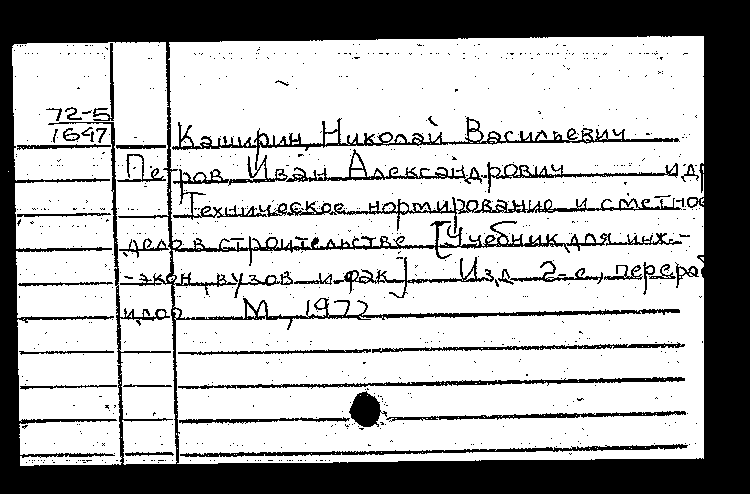 72-5
1647
Каширин, Николай Васильевич
Петров, Иван Александрович и др
Техническое нормирование и сметное
дело в строительстве [Учебник для инж.-
-экон. вузов и фак]. Изд. 2-е, перераб
и доп М., 1972